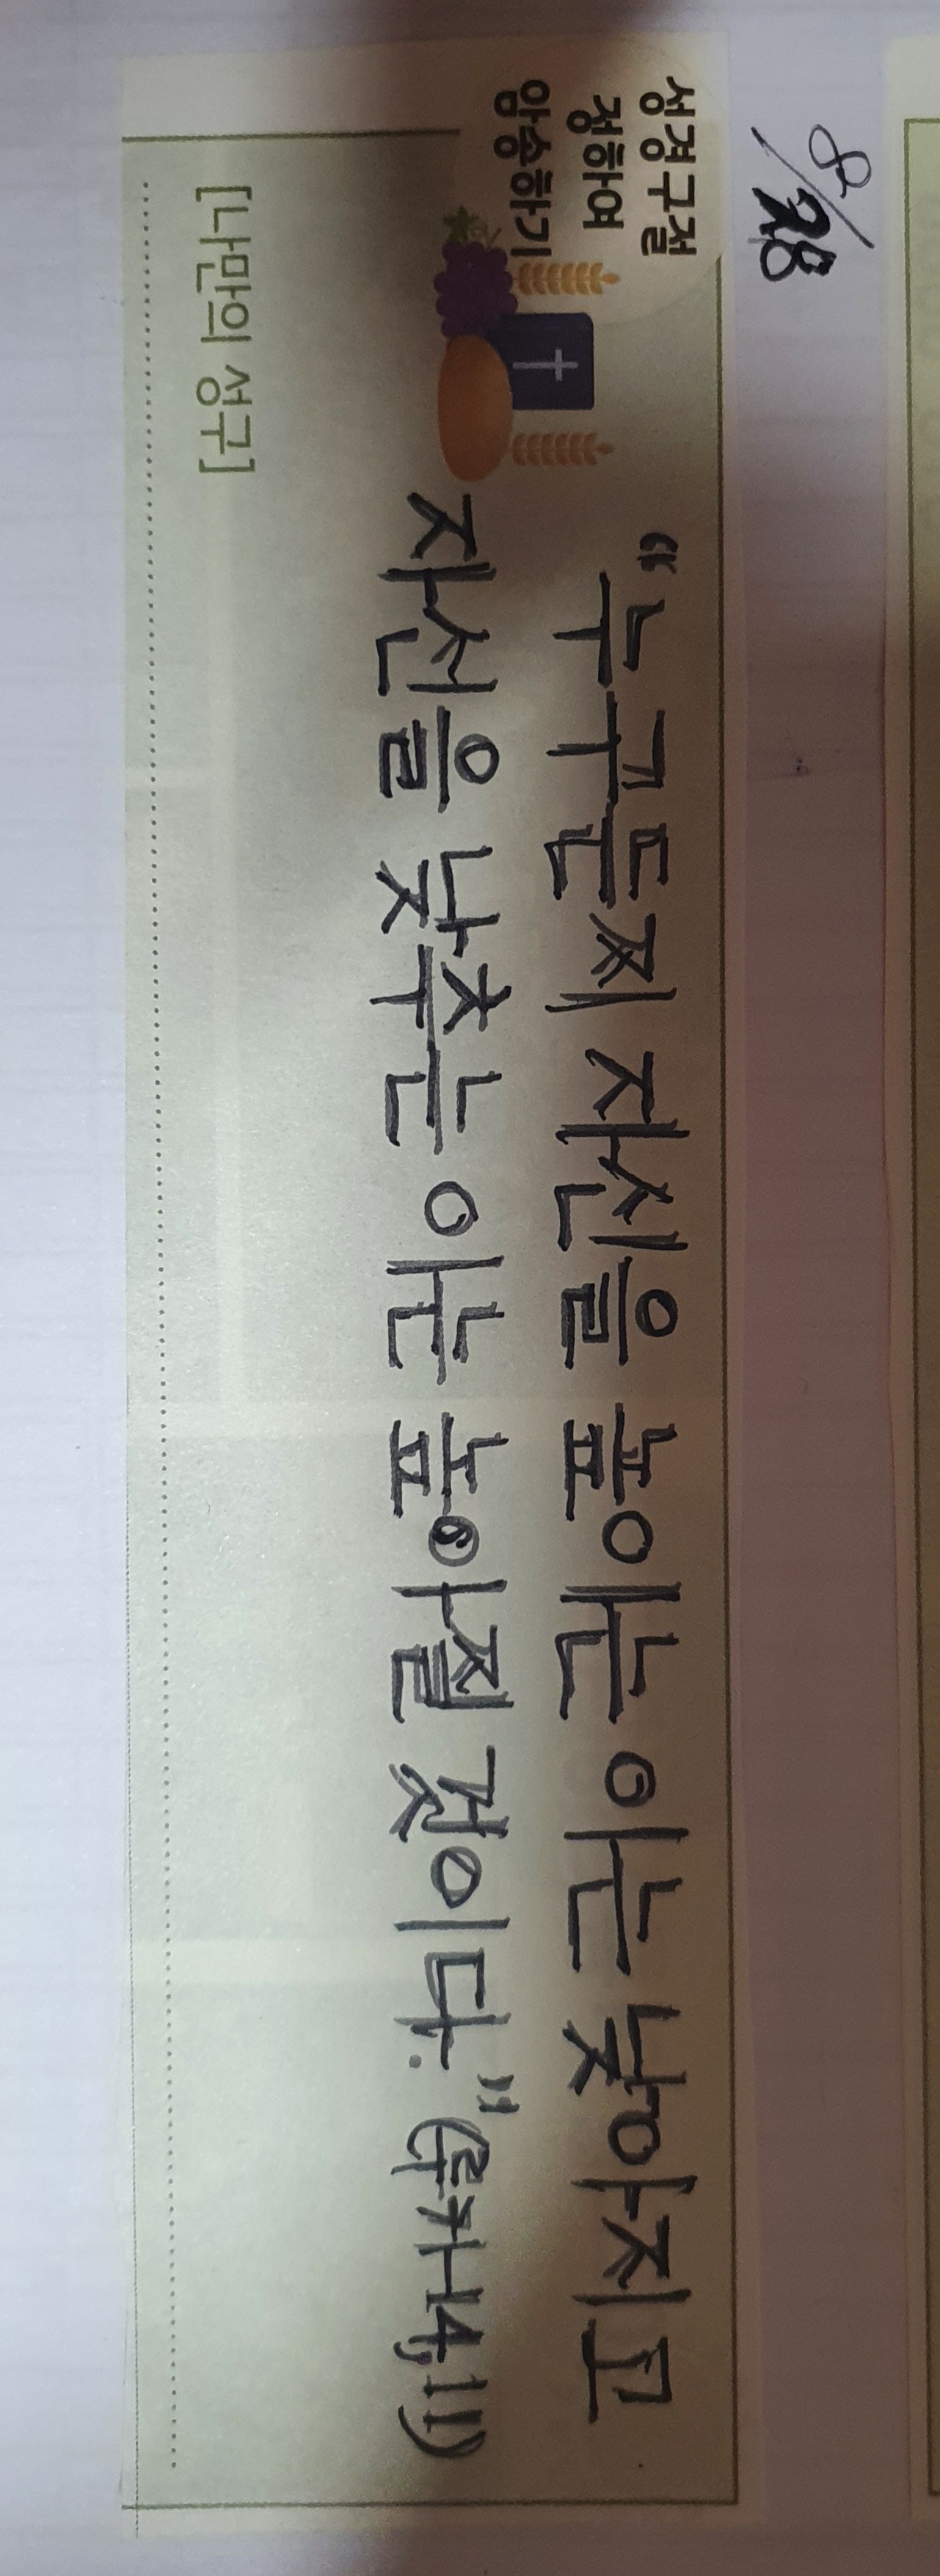 8/28
성경구절
정하여
암송하기
"누구든지 자신을 높이는 이는 낮아지고
자신을 낮추는 이는 높아질 것이다." (루카14,11)
[나만의 성구]